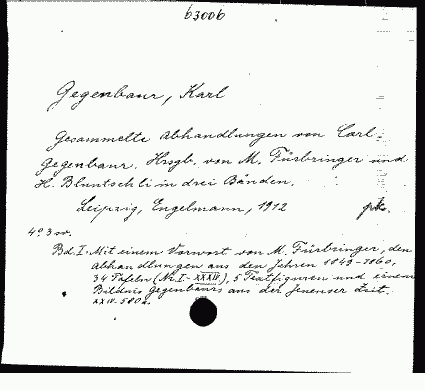 63006
Gegenbaur, Karl
Gesammelte Abhandlungen von Carl
Gegenbaur. Hrsgb. von M. Fürbringer und
H. Bluntschli in drei Bänden.
Leipzig, Engelmann, 1912
4° 3 w.
Bd. I. Mit einem Vorwort von M. Fürbringer, den
Abhandlungen aus den Jahren 1849-1860,
34 Tafeln (Nr. I-XXXIV), 5 Textfiguren und einem
Bildnis Gegenbaurs aus der Jenenser Zeit.